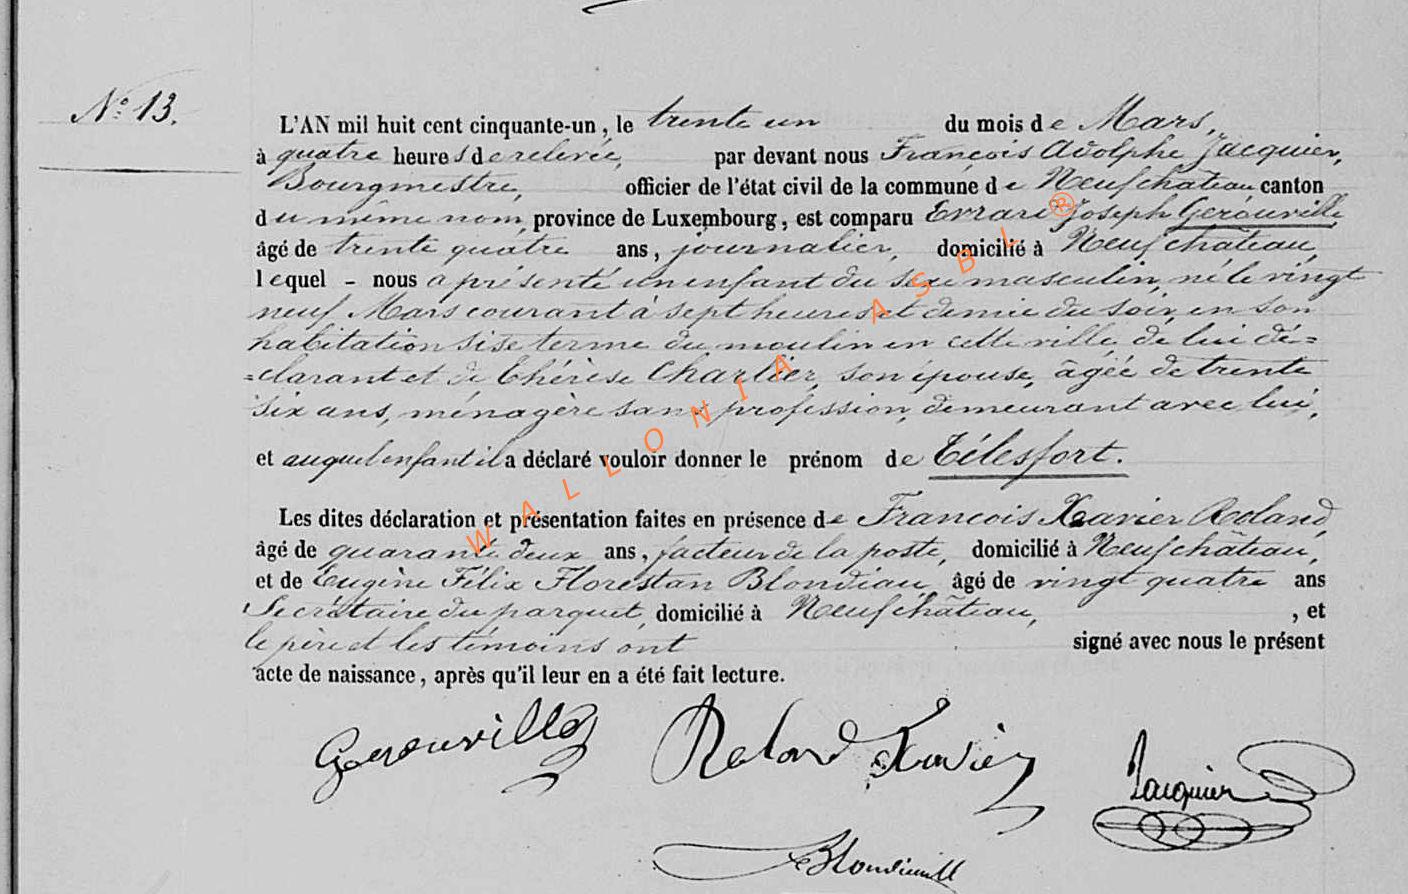 N.º 13.
L'AN mil huit cent cinquante-un, le trente un du mois de Mars,
à quatre heures de relevée, par devant nous François Adolphe Jacquier,
Bourgmestre, officier de l'état civil de la commune de Neufchâteau canton
du même nom, province de Luxembourg, est comparu Evrard Joseph Gerouville
âgé de trente quatre ans, journalier, domicilié à Neufchâteau,
lequel - nous a présenté un enfant du sexe masculin, né le vingt
neuf Mars courant à sept heures et demie du soir, en son
habitation sise terme du moulin en cette ville de lui dé=
=clarant et de Thérèse Charlier, son épouse, âgée de trente
six ans, ménagère sans profession, demeurant avec lui,
et auquel enfant il a déclaré vouloir donner le prénom de Télesfort.
Les dites déclaration et présentation faites en présence de François Xavier Roland,
âgé de quarante deux ans, facteur de la poste, domicilié à Neufchâteau,
et de Eugène Félix Florestan Blondiau, âgé de vingt quatre ans
Secrétaire du parquet, domicilié à Neufchâteau, , et
le père et les témoins ont signé avec nous le présent
acte de naissance, après qu'il leur en a été fait lecture.
Gerouville Roland Xavier Jacquier
Blondiau
WALLONIA ASBL ®